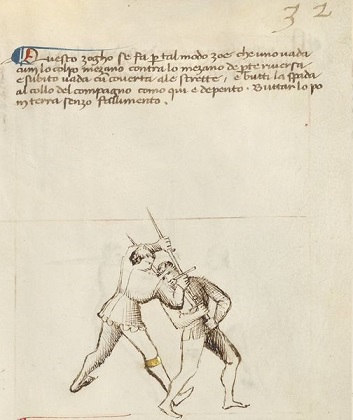 32
Questo zogho se fa p tal modo zoe che uno vada
cum lo colpo mezano contra lo mezano de pte riversa
e subito vada cũ coverta ale strette, e butti la spada
al collo del compagno como qui e depento. Buttar lo po
in terra senzo fallimento.